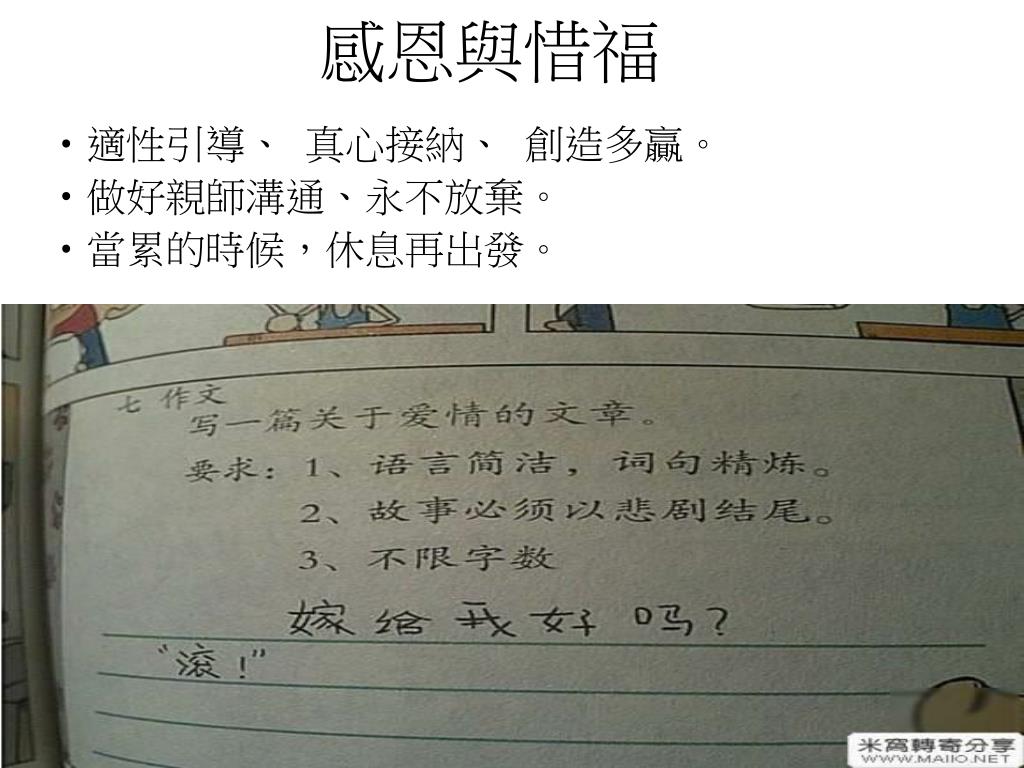 感恩與惜福
•適性引導、 真心接納、 創造多贏。
•做好親師溝通、永不放棄。
•當累的時候，休息再出發。
七 作文
写一篇关于爱情的文章。
要求：1、语言简洁，词句精炼。
2、故事必须以悲剧结尾。
3、不限字数
嫁给我好吗？
“滚！”
米窩轉寄分享
WWW.MAIIO.NET